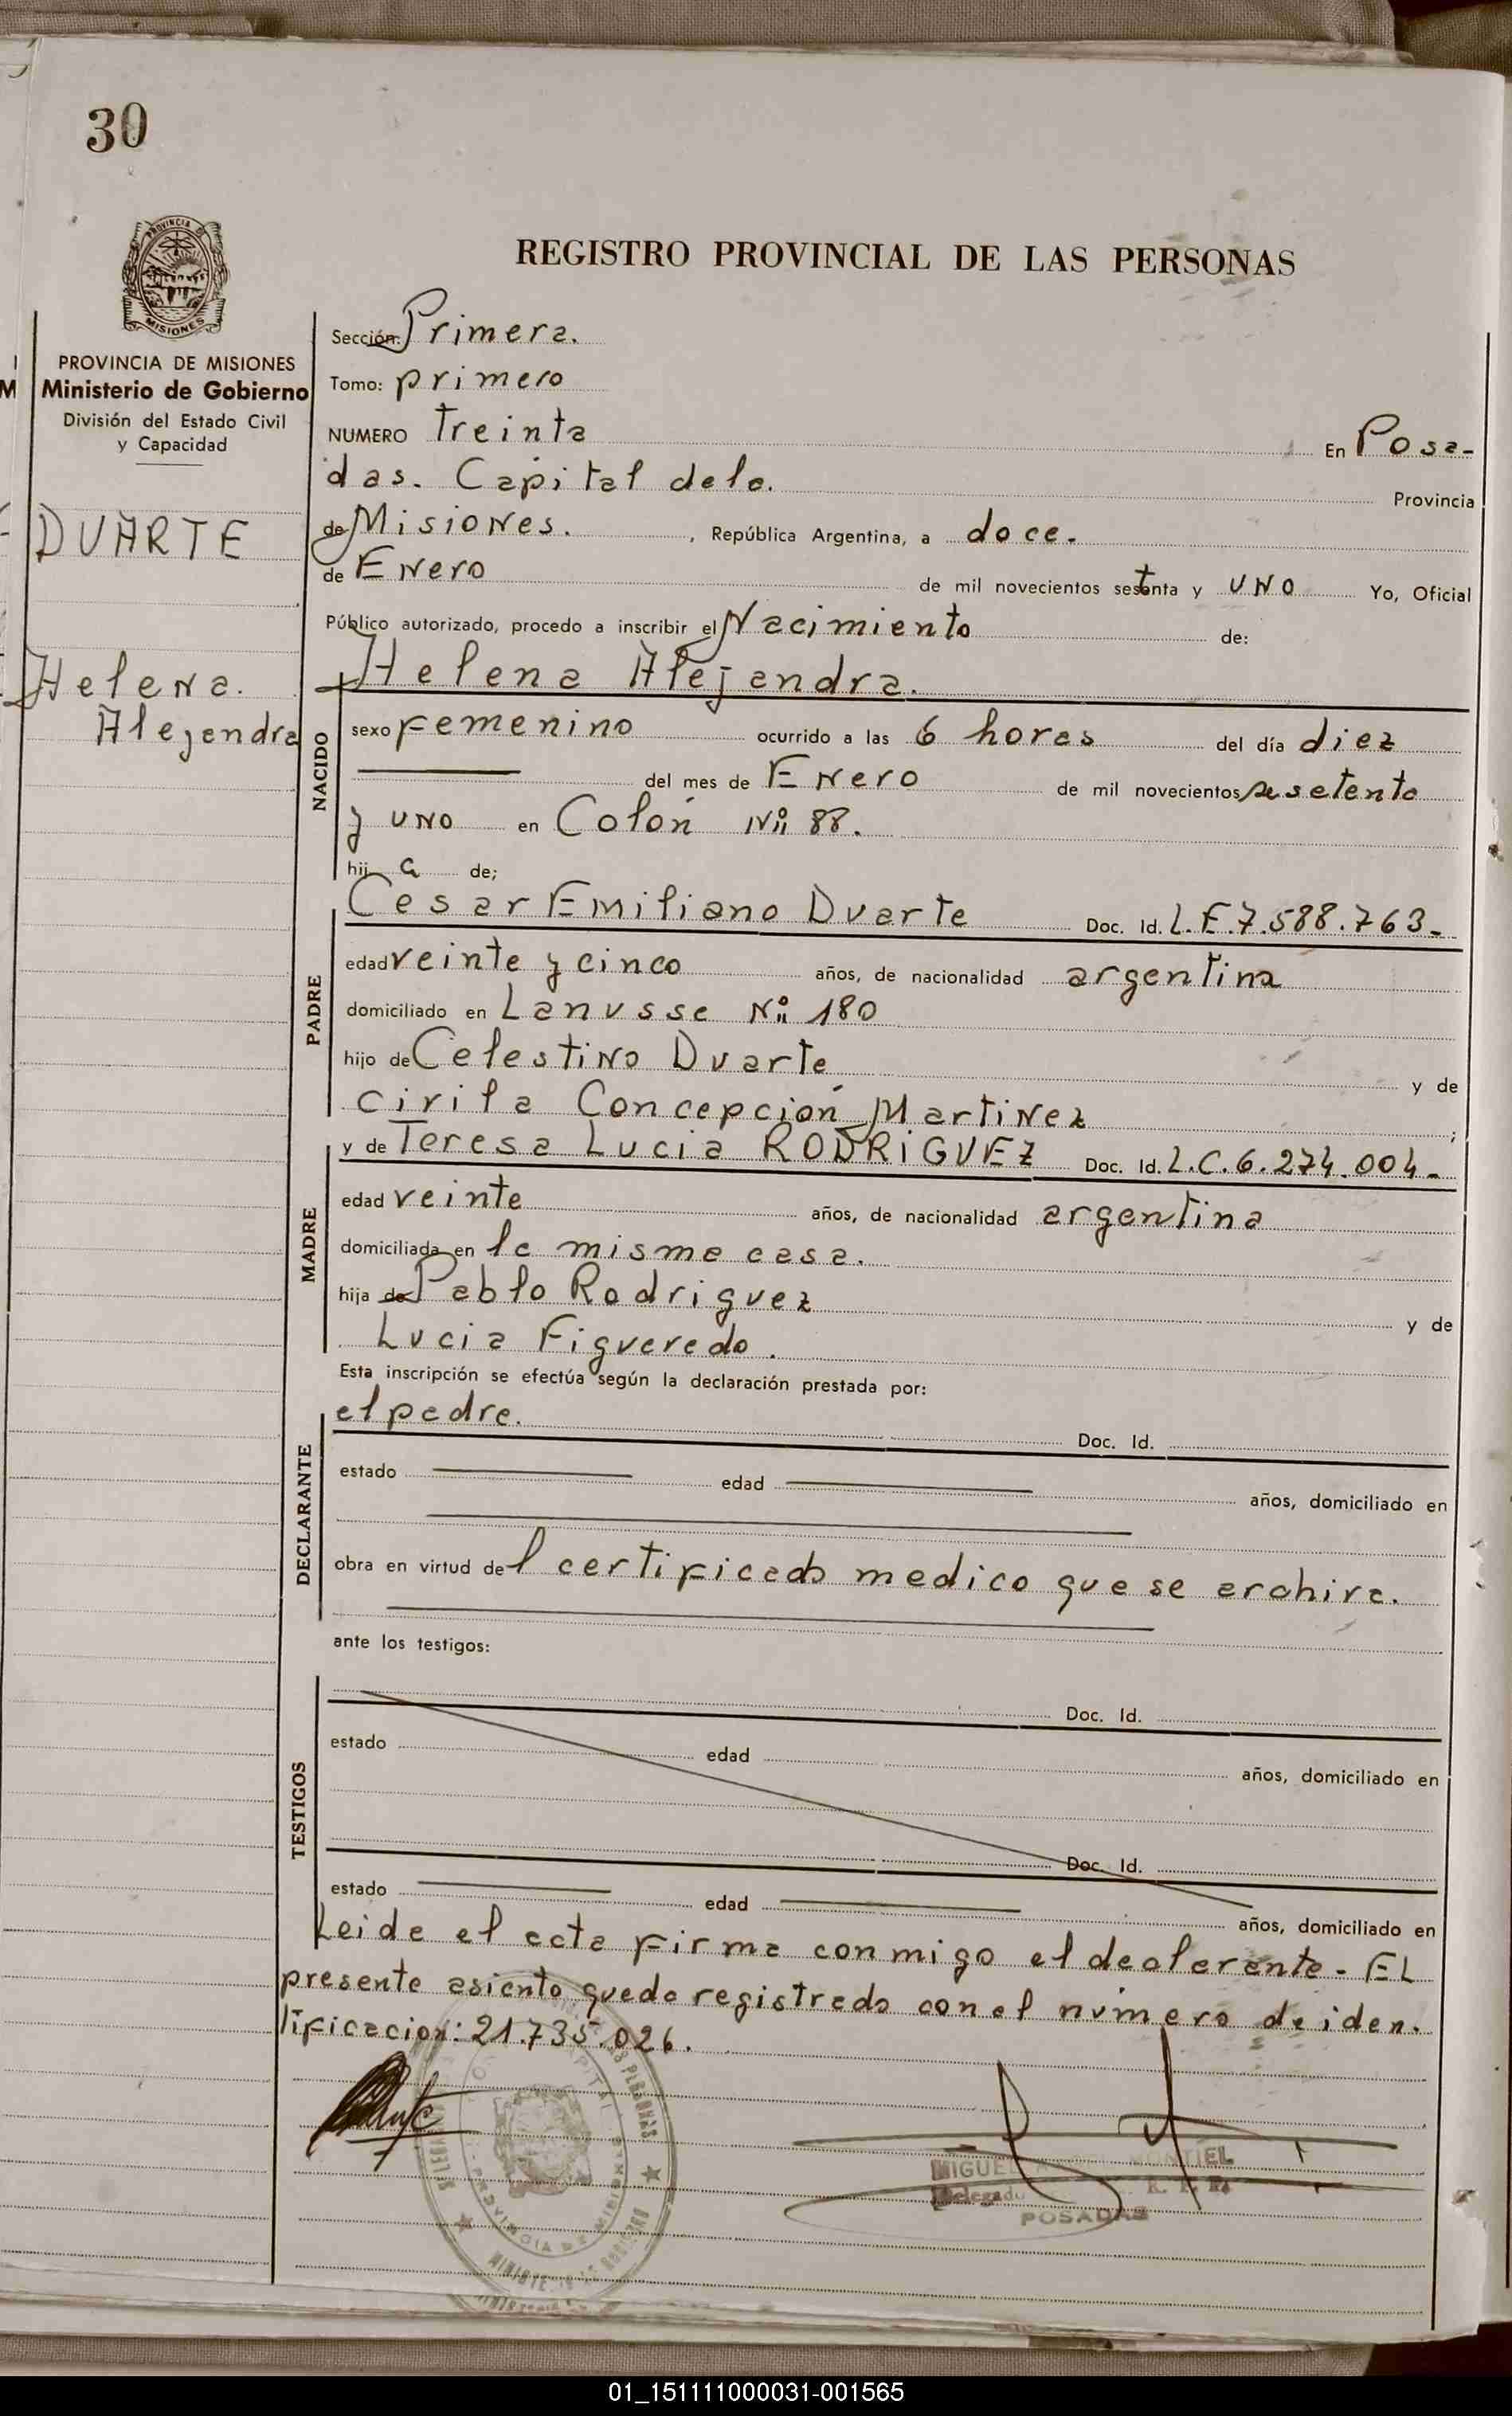 30
PROVINCIA DE
MISIONES
PROVINCIA DE MISIONES
Ministerio de Gobierno
División del Estado Civil
y Capacidad
DUARTE
Helena.
Alejandra
REGISTRO PROVINCIAL DE LAS PERSONAS
Sección: Primera.
Tomo: primero
NUMERO Treinta En Posa-
das. Capital dela. Provincia
de Misiones. , República Argentina, a doce.
de Enero de mil novecientos setenta y uno Yo, Oficial
Público autorizado, procedo a inscribir el Nacimiento de:
Helena Alejandra.
NACIDO
sexo femenino ocurrido a las 6 horas del día diez
del mes de Enero de mil novecientos setenta
y uno en Colón Nº 88.
hija de;
Cesar Emiliano Duarte Doc. Id. L.E.7.588.763-
PADRE
edad veinte y cinco años, de nacionalidad argentina
domiciliado en Lanusse Nº 180
hijo de Celestino Duarte y de
Cirila Concepción Martinez ;
y de Teresa Lucia RODRIGUEZ Doc. Id. L.C.6.274.004-
MADRE
edad veinte años, de nacionalidad argentina
domiciliada en la misma casa.
hija de Pablo Rodriguez y de
Lucia Figueredo.
Esta inscripción se efectúa según la declaración prestada por:
el padre. Doc. Id.
DECLARANTE
estado edad años, domiciliado en
obra en virtud del certificado medico que se archiva.
ante los testigos:
Doc. Id.
TESTIGOS
estado edad años, domiciliado en
Doc. Id.
estado edad años, domiciliado en
Leida el acta firma conmigo el declarante - EL
presente asiento queda registrado con el número de iden.
tificacion: 21.735.026.
MIGUEL
Delegado R. P. P.
POSADAS
01_151111000031-001565